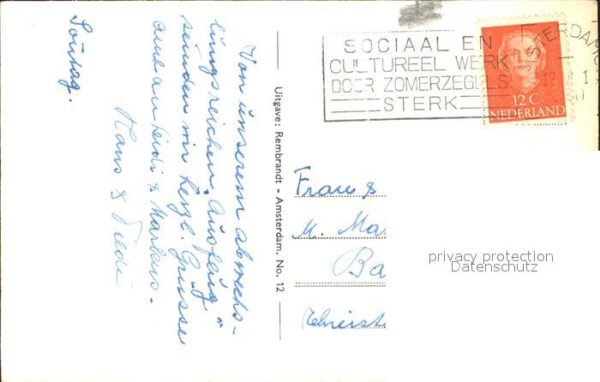 Sonntag.
Von unserem abwechs-
lungsreichen "Ausflug"
senden wir herzl. Grüsse
auch an Heidi & Markus.
Hans & Tildi
Uitgave: Rembrandt - Amsterdam. No. 12
SOCIAAL EN
CULTUREEL WERK
DOOR ZOMERZEGELS
STERK
STERDAM
12 C
NEDERLAND
M. Ma
Ba
privacy protection
Datenschutz